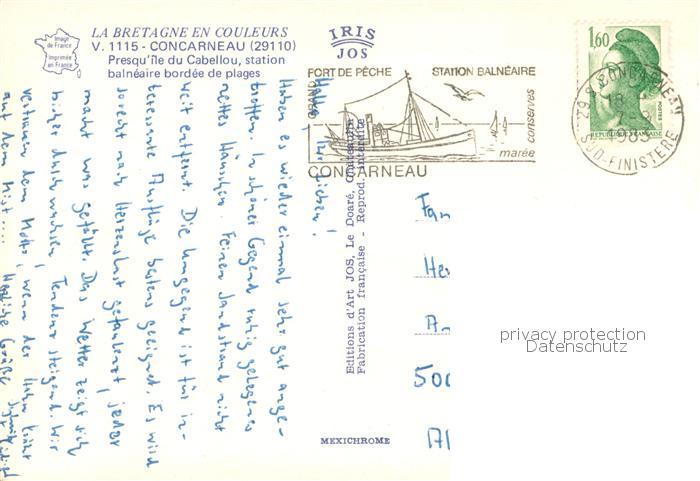 Image
de France
Imprimée
en France
LA BRETAGNE EN COULEURS
V. 1115 - CONCARNEAU (29110)
Presqu'île du Cabellou, station
balnéaire bordée de plages
IRIS
JOS
GRAND PORT DE PÊCHE
STATION BALNÉAIRE
conserves
marée
CONCARNEAU
1,60
POSTES
REPUBLIQUE FRANÇAISE
29 CONCARNEAU
18
1983
SUD-FINISTERE
Hallo, Ihr Lieben!
Haben es wieder einmal sehr gut ange-
troffen. In schöner Gegend ruhig gelegenes
nettes Häuschen. Feinen Sandstrand nicht
weit entfernt. Die Umgegend ist für in-
teressante Ausflüge bestens geeignet. Es wird
sowohl nach Herzenslust gefaulenzt, jeder
macht was gefällt. Das Wetter zeigt sich
bisher durchwachsen, Tendenz steigend. Wir
vertrauen dem Motto: wenn der Hahn kräht
auf dem Mist.... Herzliche Grüße
Editions d'Art JOS, Le Doaré, Châteaulin
Fabrication française - Reprod. interdite
MEXICHROME
Fam
He
An
500
Al
privacy protection
Datenschutz